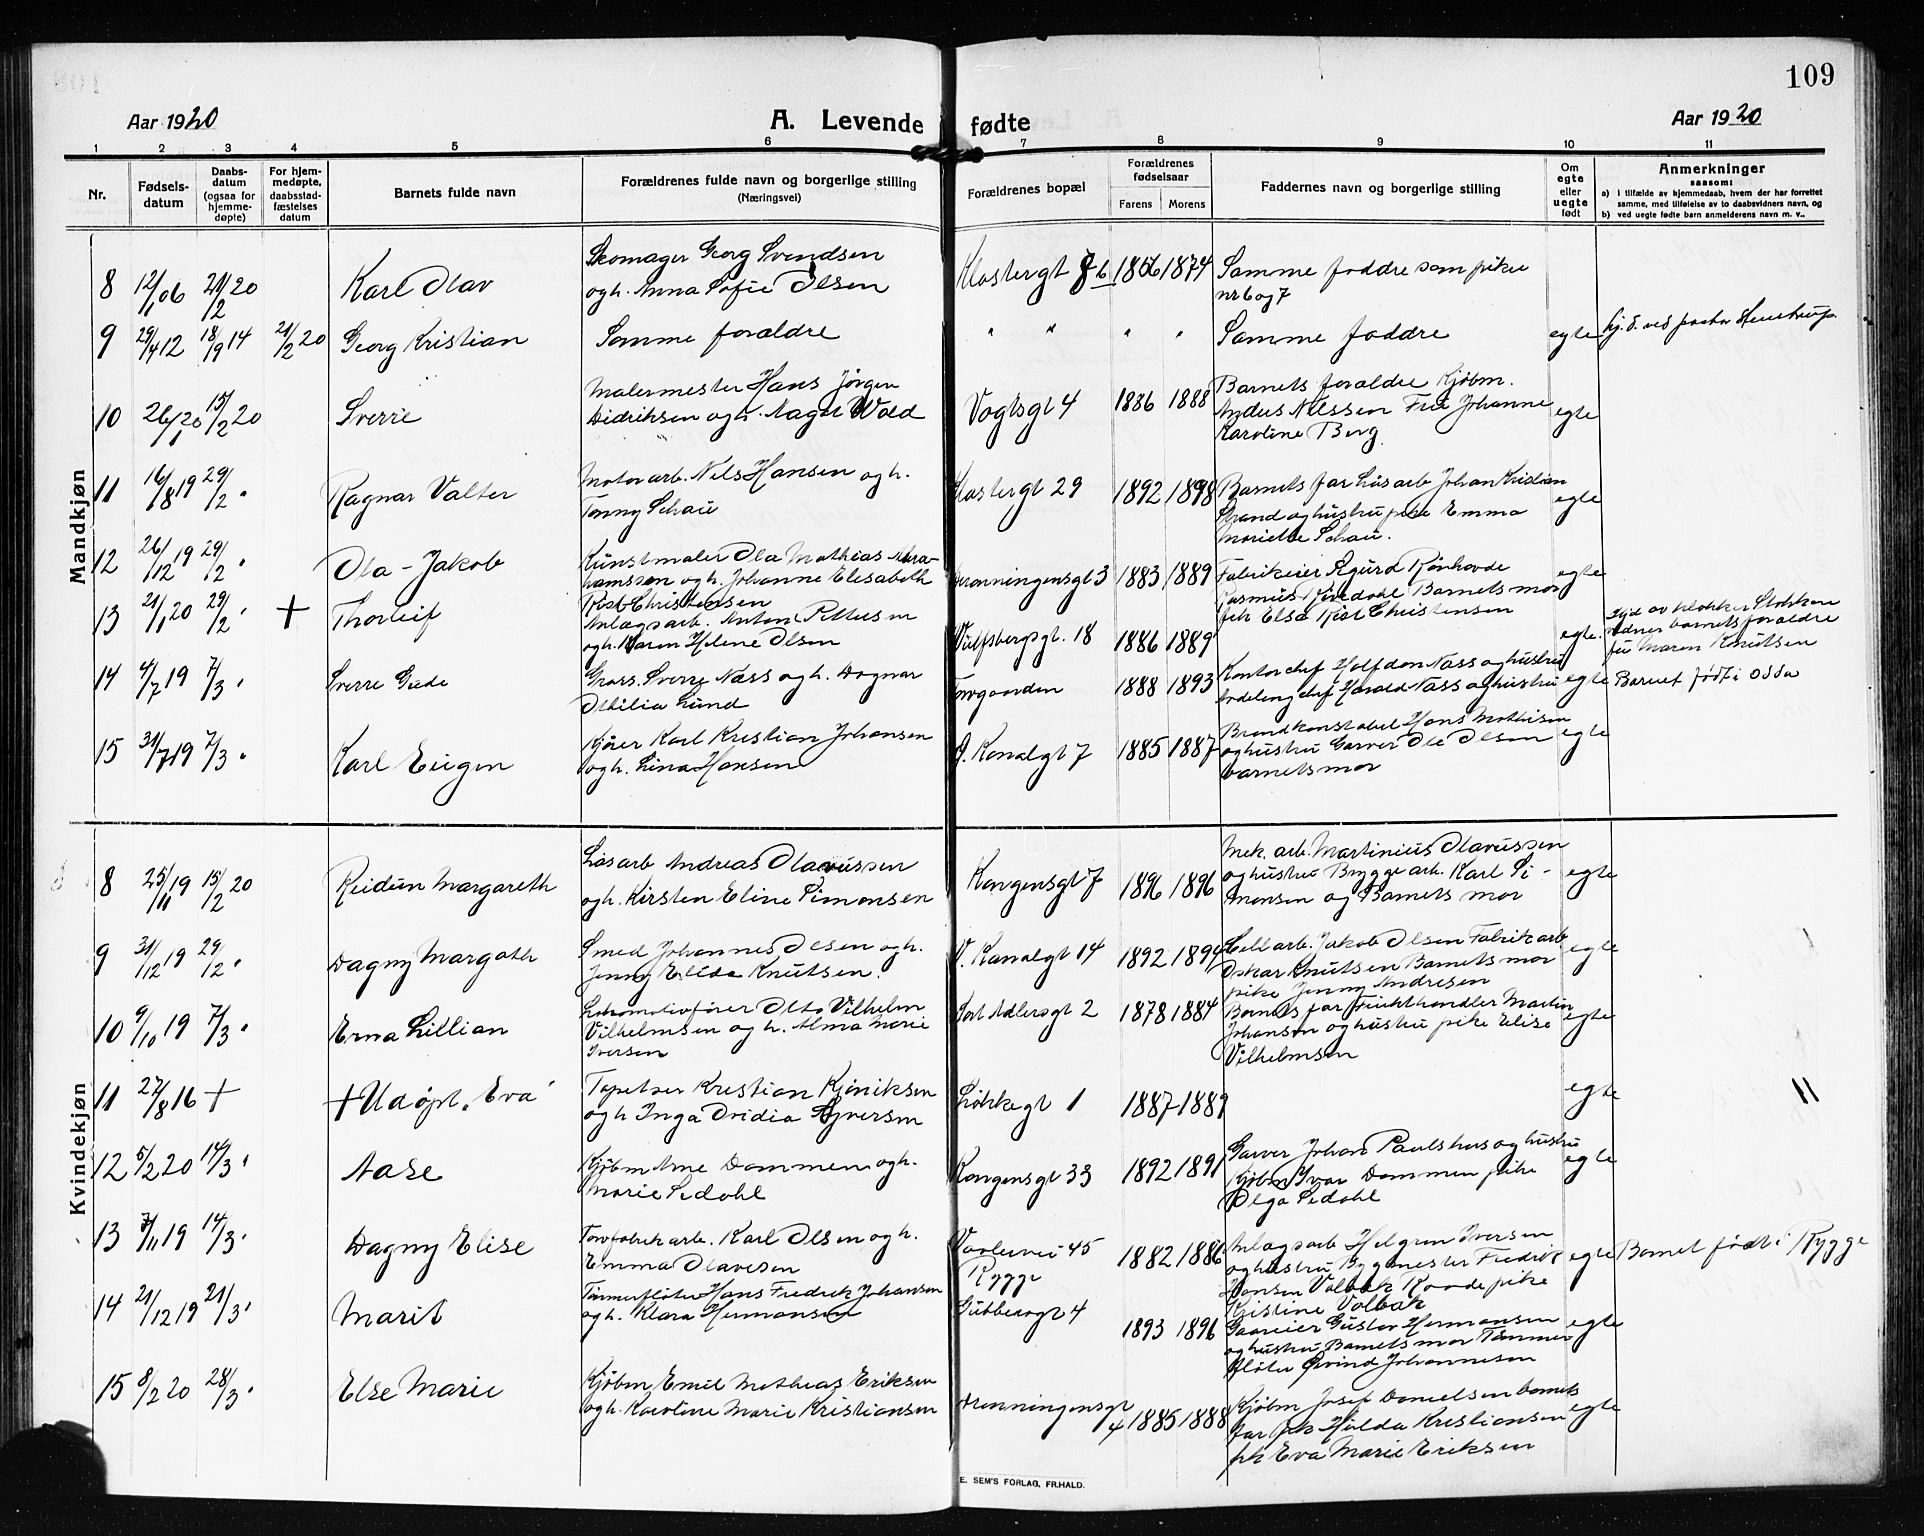 109
Aar 1920
A. Levende fødte
Aar 1920
1 2 3 4 5 6 7 8 9 10 11
Nr.
Fødsels-
datum
Daabs-
datum
(ogsaa for
hjemme-
døpte)
For hjem-
medøpte,
daabsstad-
fæstelses
datum
Barnets fulde navn
Forældrenes fulde navn og borgerlige stilling
(Næringsvei)
Forældrenes bopæl
Forældrenes
fødselsaar
Farens Morens
Faddernes navn og borgerlige stilling
Om
egte
eller
uegte
født
Anmerkninger
saasom:
a) i tilfælde av hjemmedaab, hvem der har forrettet
samme, med tilføielse av to daabsvidners navn, og
b) ved uegte fødte barn anmelderens navn m. v..
Mandkjøn
8 12/1 06 21/2 20 Karl Olav
Skomager Georg Svendsen
og h. Anna Sofie Olsen
Klostergt 1874
Samme faddre som pike
nr 6 og 7
9 29/4 12 18/9 14 21/2 20 Georg Kristian
Samme forældre
" " " "
Samme faddre
egte
hj. d. ved pastor
10 26/1 20 15/2 20 Sverre
Malermester Hans Jørgen
Didriksen og h. Aagot Wold
Vogtsgt 4 1886 1888
Barnets forældre Kjøbm.
Nilssen Frk Johanne
Karoline Berg
egte
11 16/8 19 29/2 " Ragnar Valter
Motorarb. Nils Hansen og h.
Tonny Schau
Klostergt 29 1892 1898
Barnets far Løsarb Johan Kristian
Strand og hustru pike Emma
Mariette Schau.
egte
12 26/12 19 29/2 " Ola-Jakob
Kunstmaler Ola Mathias Abra-
hamssen og h. Johanne Elisabeth
Kist Christensen
Dronningensgt 3 1883 1889
Fabrikeier Sigurd Rønhovde
Rasmus Barnets mor
frk Elsa Kist Christensen
egte
13 21/1 20 29/2 " + Thorleif
Anlægsarb. Anton Pettersen
og h. Maren Helene Olsen
Vulfsbergsgt. 18 1886 1889
egte.
av klokker Stokken
vidner barnets forældre
fru Maren Knutsen
14 4/7 19 7/3 " Sverre Gude
Gross. Sverre Næss og h. Dagnar
Ottilia Lund
Torvgaarden 1888 1893
Kontorchef Halfdan Næss og hustru
avdeling chef Harald Næss og hustru
egte
Barnet født i Odda
15 31/7 19 7/3 " Karl Eugen
Kjører Karl Kristian Johansen
og h. Lina Hansen
Ø. Kanalgt 7 1885 1887
Brandkonstabel Hans Mathisen
og hustru Garver Ole Olsen
barnets mor
egte
Kvindekjøn
8 25/11 19 15/2 20 Reidun Margareth
Løsarb Andreas Olavussen
og h. Kirsten Eline Simonsen
Kongensgt 7 1896 1896
Mek. arb. Martinius Olavussen
og hustru Bryggearb. Karl Si-
monsen og Barnets mor
egte
9 31/12 19 29/2 " Dagny Margoth
Smed Johannes Olsen og h.
Jenny Elida Knutsen.
V. Kanalgt 14 1892 1894
Cellarb. Jakob Olsen Fabrikarb
Oskar Knutsen Barnets mor
pike Jenny Andresen
egte
10 9/10 19 7/3 " Erna Lillian
Lokomotivfører Otto Vilhelm
Vilhelmsen og h. Alma Marie
Iversen
Tort Adlersgt 2 1878 1884
Barnets far Frukthandler Martin
Johansen og hustru pike Elise
Vilhelmsen
egte
11 27/8 16 + + Udøpt "Eva"
Tapetser Kristian Kjøniksen
og h Inga Ovidia Syversen
Løkkegt 1 1887 1889
egte
11
12 5/2 20 14/3 " Aase
Kjøbm Arne Dammen og h.
Marie Sedahl
Kongensgt 33 1892 1891
Garver Johan Paulshus og hustru
Kjøbm Ivar Dammen pike
Olga Sedahl
egte
13 7/11 19 14/3 " Dagny Elise
Torvfabrikarb. Karl Olsen og h.
Emma Olavesen
Vaalervei 45
Rygge
1882 1886
Anlægsarb Helgren Iversen
og hustru Bygmester Fredrik
Hansen Volbak Raade pike
Kristine Volbak
egte
Barnet født i Rygge
14 21/12 19 21/3 " Marit
Tømmerfløter Hans Fredrik Johansen
og h. Klara Hermansen
Gubberogt 4 1893 1896
Gaareier Gustav Hermansen
og hustru Barnets mor Tømmer
fløter Øivind Johannesen
egte
15 8/2 20 28/3 " Else Marie
Kjøbm Emil Mathias Eriksen
og h. Karoline Marie Kristiansen
Dronningensgt
4 1885 1888
Kjøbm Josef Danielsen barnets
far frk Hulda Kristiansen
frk Eva Marie Eriksen
egte
E. SEM'S FORLAG, FR.HALD.